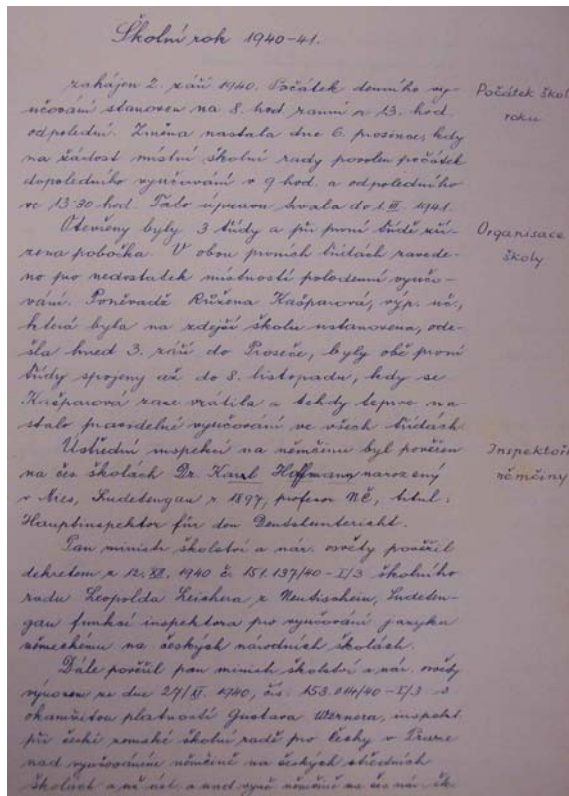 Školní rok 1940-41.
zahájen 2. září 1940. Počátek denního vy-
učování stanoven na 8. hod. ranní a 13. hod.
odpolední. Změna nastala dne 6. prosince, kdy
na žádost místní školní rady povolen počátek
dopoledního vyučování v 9 hod. a odpoledního
ve 13·30 hod. Tato úprava trvala do 1. III. 1941.
Otevřeny byly 3 třídy a při první třídě zří-
zena pobočka. V obou prvních třídách zavede-
no pro nedostatek místností polodenní vyučo-
vání. Poněvadž Růžena Kašparová, výp. uč.,
která byla na zdejší školu ustanovena, ode-
šla hned 3. září do Proseče, byly obě první
třídy spojeny až do 8. listopadu, kdy se
Kašparová zase vrátila a tehdy teprve na-
stalo pravidelné vyučování ve všech třídách.
Ústřední inspekcí na němčinu byl pověřen
na čes. školách Dr. Karl Hoffmann narozený
v Sudetengau r. 1897, profesor NČ, titul:
Hauptinspektor für den Deutschunterricht.
Pan ministr školství a nár. osvěty pověřil
dekretem z 12. XII. 1940 č. 151.137/40-I/3 školního
radu Leopolda Leichera z Neutischein, Sudeten-
gau funkcí inspektora pro vyučování jazyku
německému na českých národních školách.
Dále pověřil pan ministr školství a nár. osvěty
výnosem ze dne 1940, čís. 153.014/40-I/3 s
okamžitou platností Gustava Wernera, inspekt.
při české zemské školní radě pro Čechy v Praze
nad vyučováním němčině na českých středních
školách a nad vyuč. němčině na čes. nár. šk.
Počátek škol.
roku
Organisace
školy
Inspektoři
němčiny